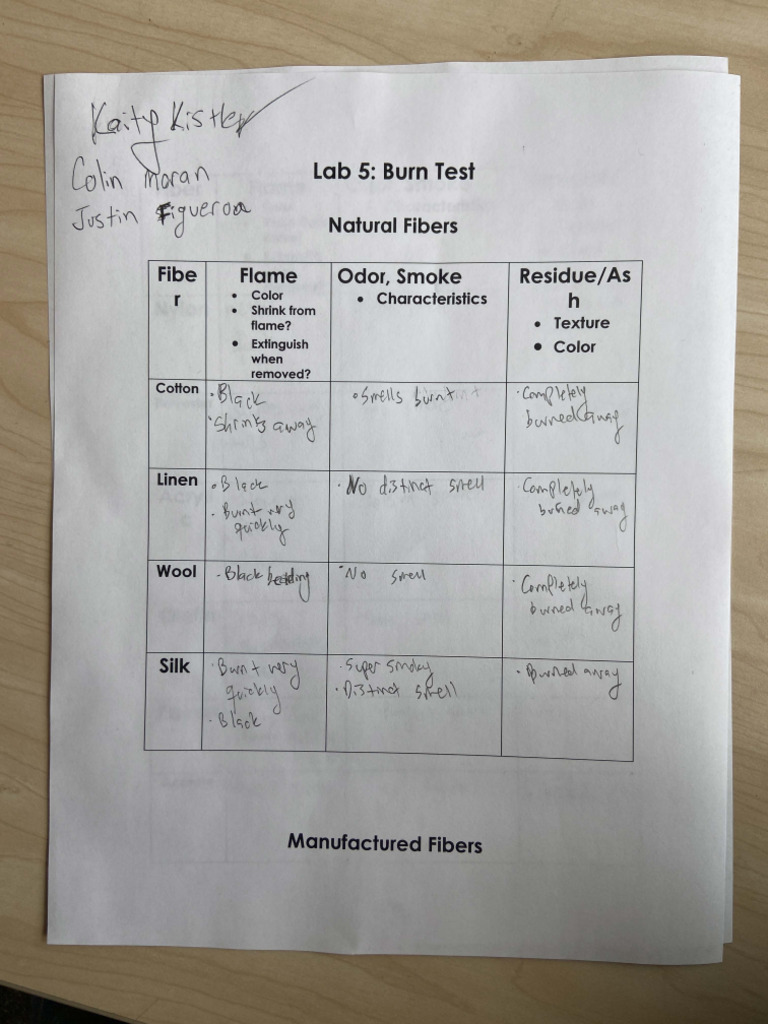 Kaity Kistler
Colin Moran
Justin Figueroa
Lab 5: Burn Test
Natural Fibers
Fibe
r
Flame
• Color
• Shrink from
flame?
• Extinguish
when
removed?
Odor, Smoke
• Characteristics
Residue/As
h
• Texture
• Color
Cotton
• Black
• Shrinks away
• Smells burnt
• Completely
burned away
Linen
• Black
• Burnt very
quickly
• No distinct smell
• Completely
burned away
Wool
• Black beading
• No smell
• Completely
burned away
Silk
• Burnt very
quickly
• Black
• Super smoky
• Distinct smell
• Burned away
Manufactured Fibers